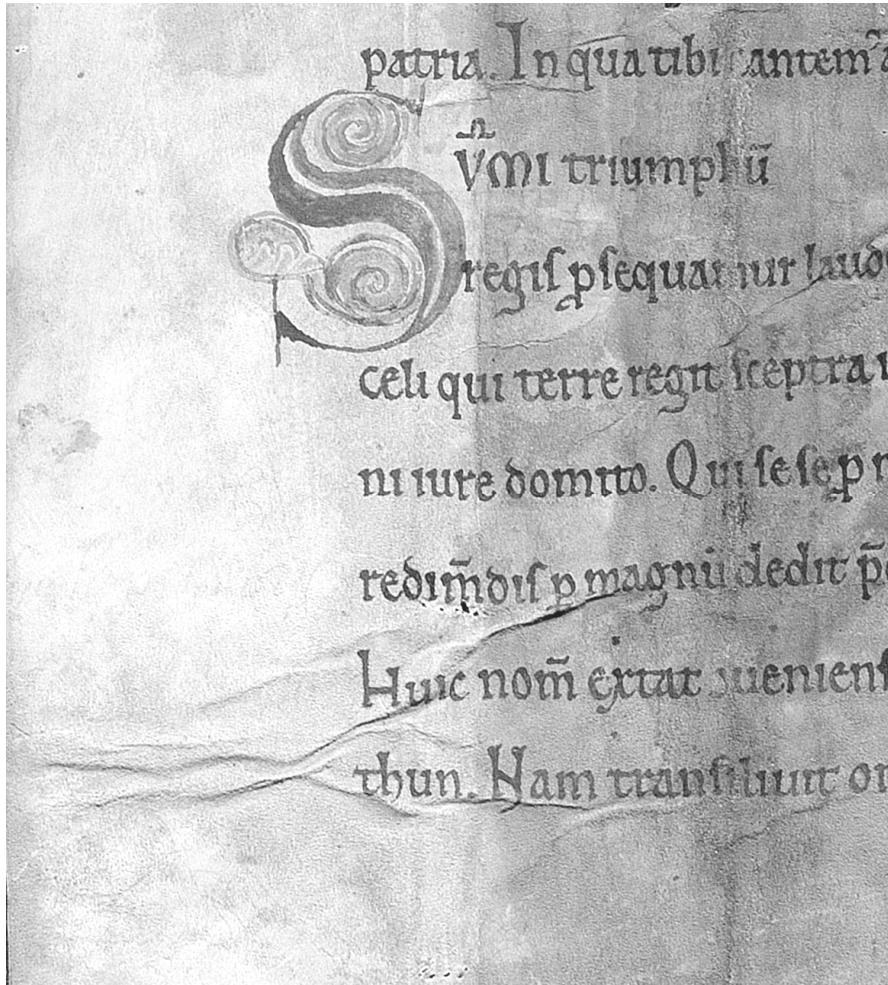 patria. In qua tibi cantem᷑
SV̄MI triumphū
regis ꝓsequamur laud
celi qui terre regit sceptra
ni iure domito. Qui sese ꝓ
redim̄dis ꝑ magnū dedit p̄
Huic nom̄ extat ꝯueniens
thun. Nam transiliuit om